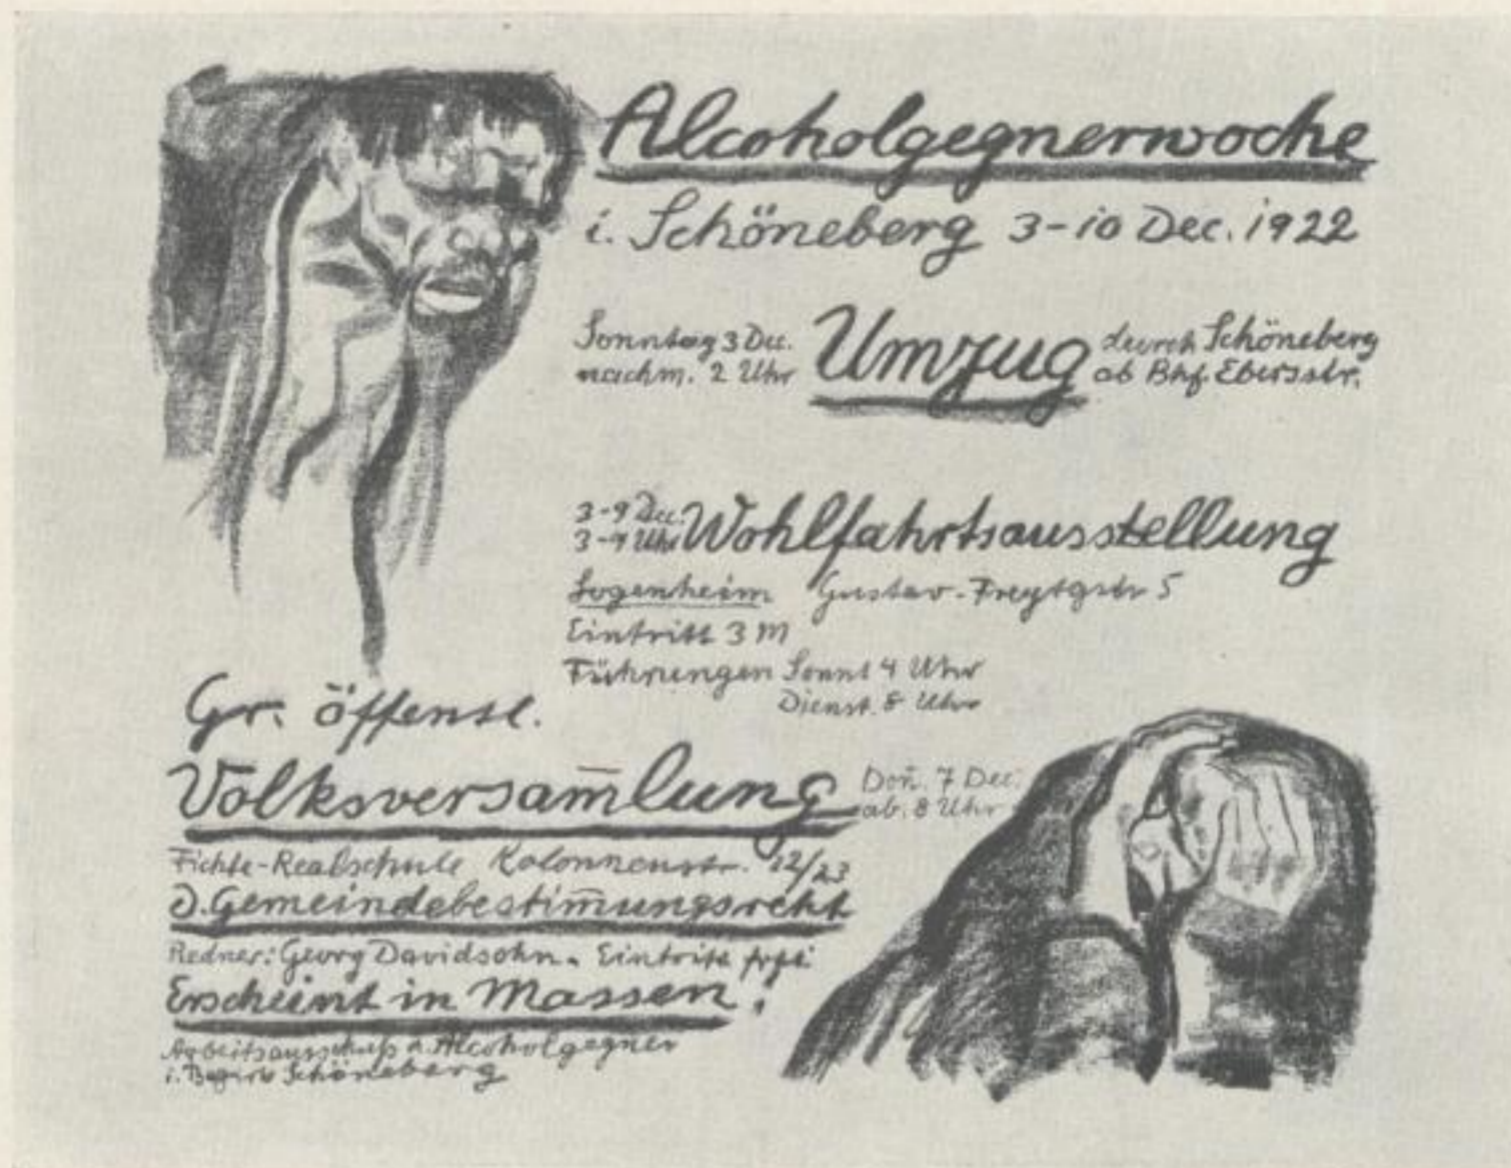 Alcoholgegnerwoche
i. Schöneberg 3-10 Dec. 1922
Sonntag 3 Dec.
nachm. 2 Uhr
Umzug
durch Schöneberg
ab Bhf. Ebersstr.
3-9 Dec.
3-9 Uhr
Wohlfahrtsausstellung
Logenheim Gustav-Freytgstr 5
Eintritt 3 M
Führungen Sonnt 4 Uhr
Dienst. 8 Uhr
Gr. öffentl.
Volksversam̄lung
Don̄. 7 Dec.
ab. 8 Uhr
Fichte-Realschule Kolonnenstr. 22/23
d. Gemeindebestim̄ungsrecht
Redner: Georg Davidsohn. Eintritt frei
Erscheint in Massen!
Arbeitsausschuß d. Alcoholgegner
i. Bezirk Schöneberg